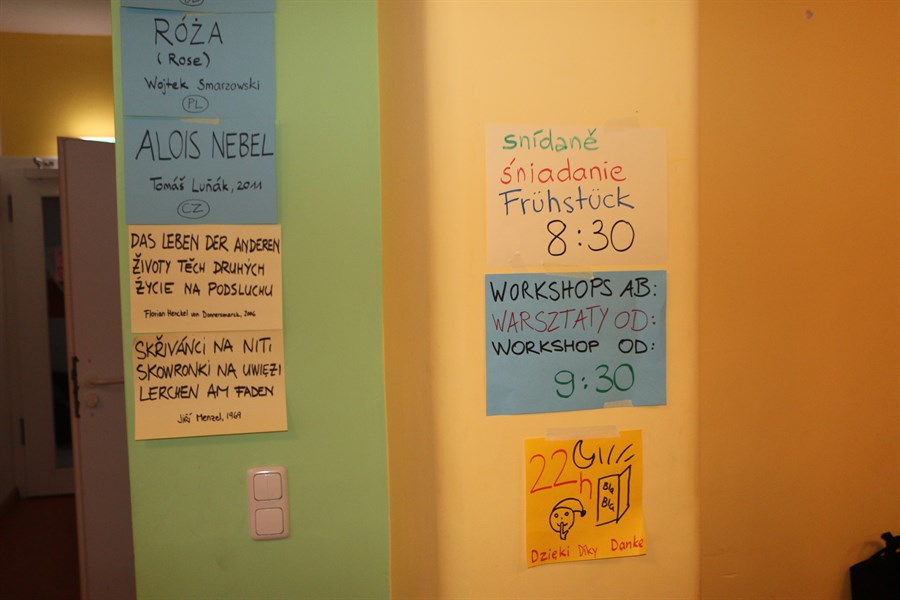 RÓŻA
(Rose)
Wojtek Smarzowski
PL
ALOIS NEBEL
Tomáš Luňák, 2011
CZ
DAS LEBEN DER ANDEREN
ŽIVOTY TĚCH DRUHÝCH
ŻYCIE NA PODSŁUCHU
Florian Henckel von Donnersmarck, 2006
SKŘIVÁNCI NA NITI
SKOWRONKI NA UWIĘZI
LERCHEN AM FADEN
Jiří Menzel, 1969
snídaně
śniadanie
Frühstück
8:30
WORKSHOPS AB:
WARSZTATY OD:
WORKSHOP OD:
9:30
22h
Bla
BlA
Dzieki Díky Danke